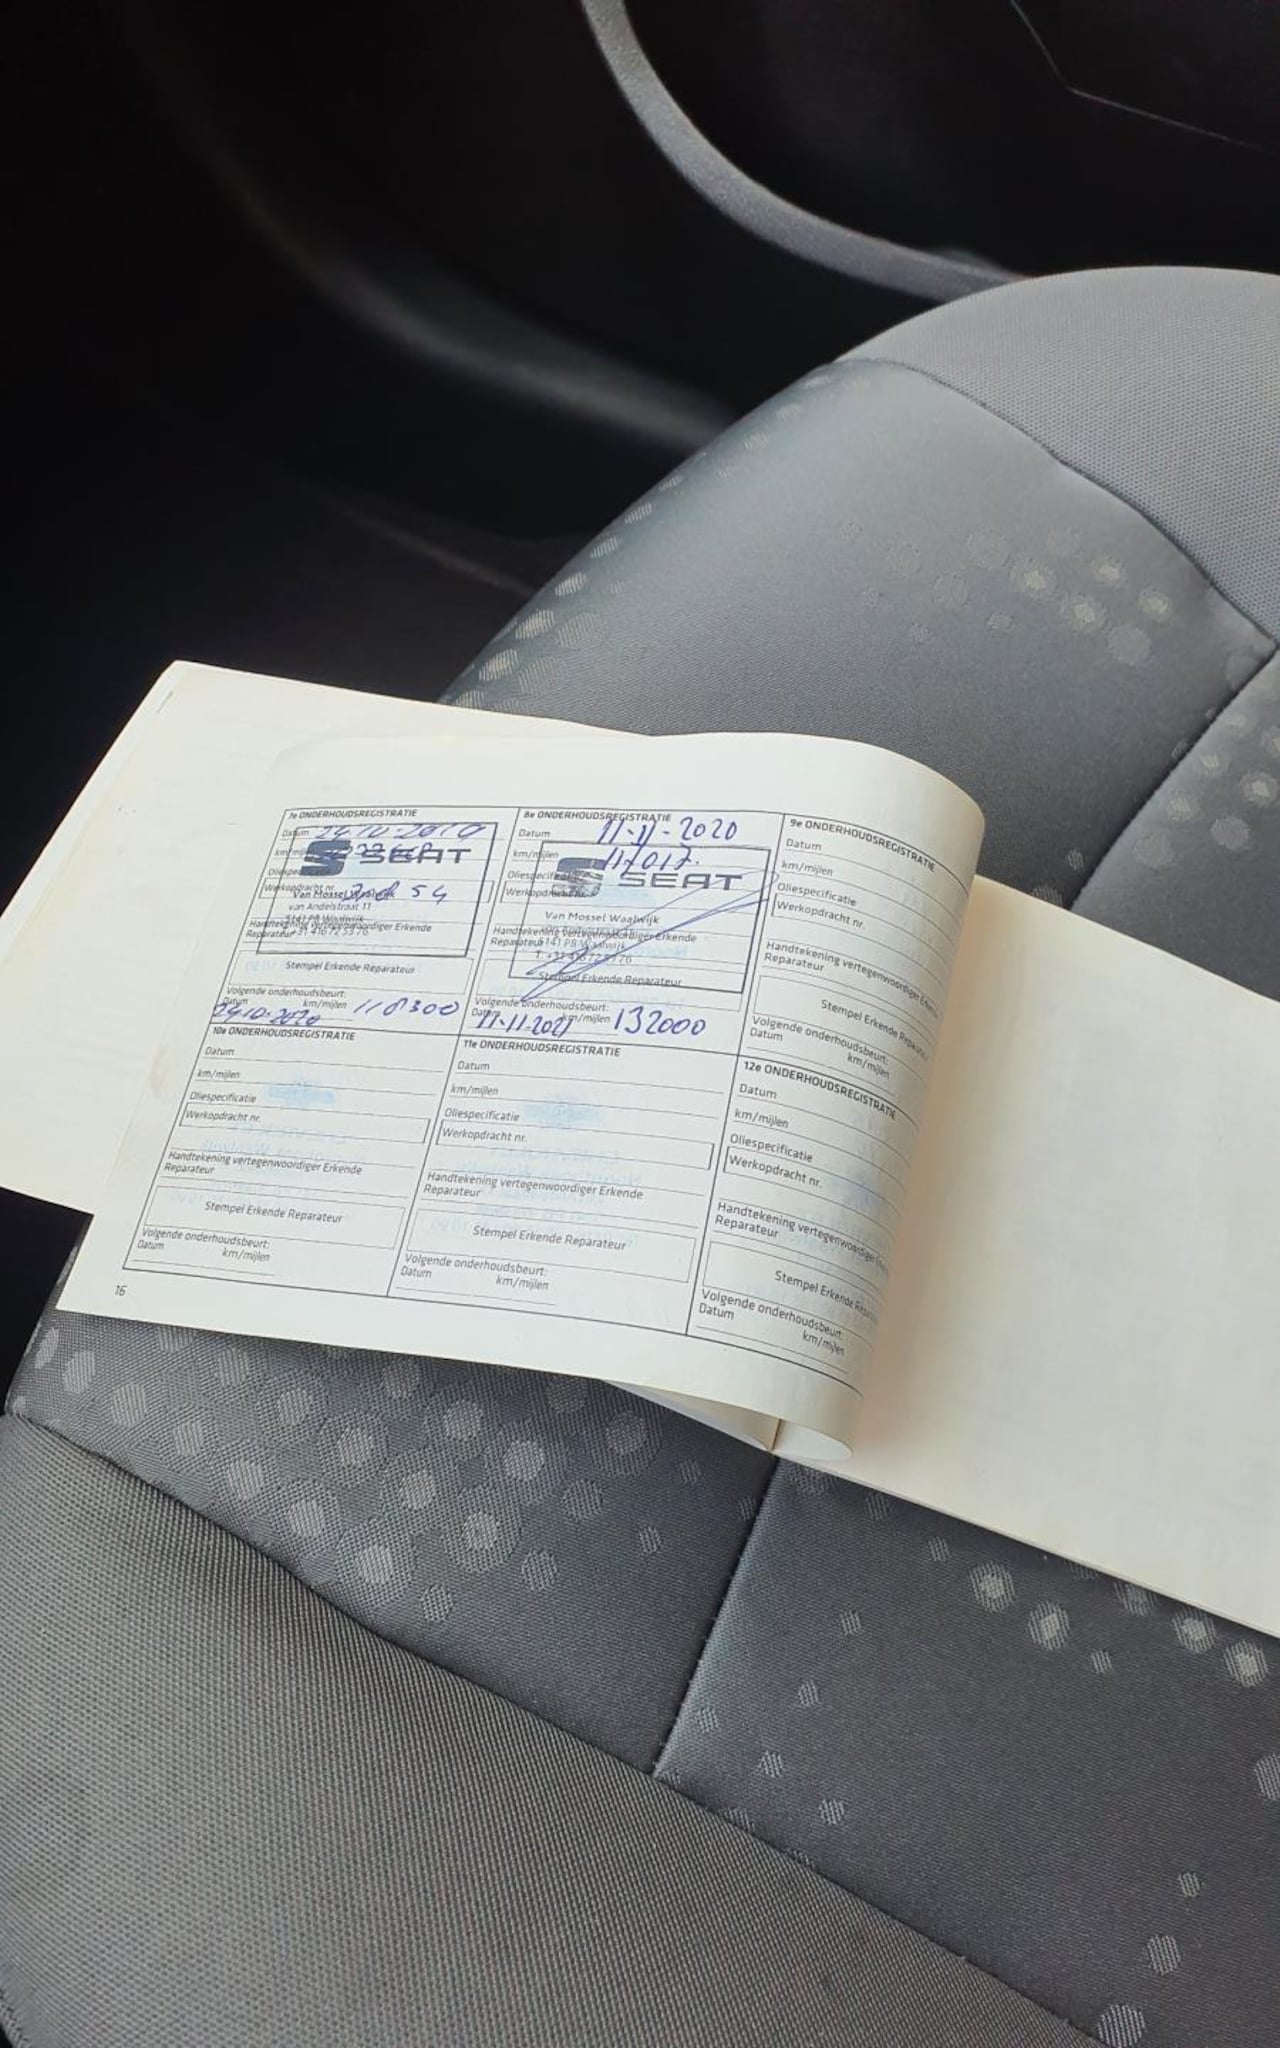 7e ONDERHOUDSREGISTRATIE
Datum 24-10-2019
km/mijlen
SEAT
Oliespecificatie
Werkopdracht nr. 54
Van Mossel Waalwijk
van Andelstraat 11
5141 PB Waalwijk
Handtekening vertegenwoordiger Erkende
Reparateur
Stempel Erkende Reparateur
Volgende onderhoudsbeurt:
Datum km/mijlen
24-10-2020 118300
8e ONDERHOUDSREGISTRATIE
Datum 11-11-2020
km/mijlen 117017.
SEAT
Oliespecificatie
Werkopdracht nr.
Van Mossel Waalwijk
Handtekening vertegenwoordiger Erkende
Reparateur 5141 PB Waalwijk
Stempel Erkende Reparateur
Volgende onderhoudsbeurt:
Datum km/mijlen
11-11-2021 132000
9e ONDERHOUDSREGISTRATIE
Datum
km/mijlen
Oliespecificatie
Werkopdracht nr.
Handtekening vertegenwoordiger
Reparateur
Stempel Erkende Reparateur
Volgende onderhoudsbeurt:
Datum
km/mijlen
10e ONDERHOUDSREGISTRATIE
Datum
km/mijlen
Oliespecificatie
Werkopdracht nr.
Handtekening vertegenwoordiger Erkende
Reparateur
Stempel Erkende Reparateur
Volgende onderhoudsbeurt:
Datum km/mijlen
11e ONDERHOUDSREGISTRATIE
Datum
km/mijlen
Oliespecificatie
Werkopdracht nr.
Handtekening vertegenwoordiger Erkende
Reparateur
Stempel Erkende Reparateur
Volgende onderhoudsbeurt:
Datum km/mijlen
12e ONDERHOUDSREGISTRATIE
Datum
km/mijlen
Oliespecificatie
Werkopdracht nr.
Handtekening vertegenwoordiger
Reparateur
Stempel Erkende
Volgende onderhoudsbeurt:
Datum
km/mijlen
16